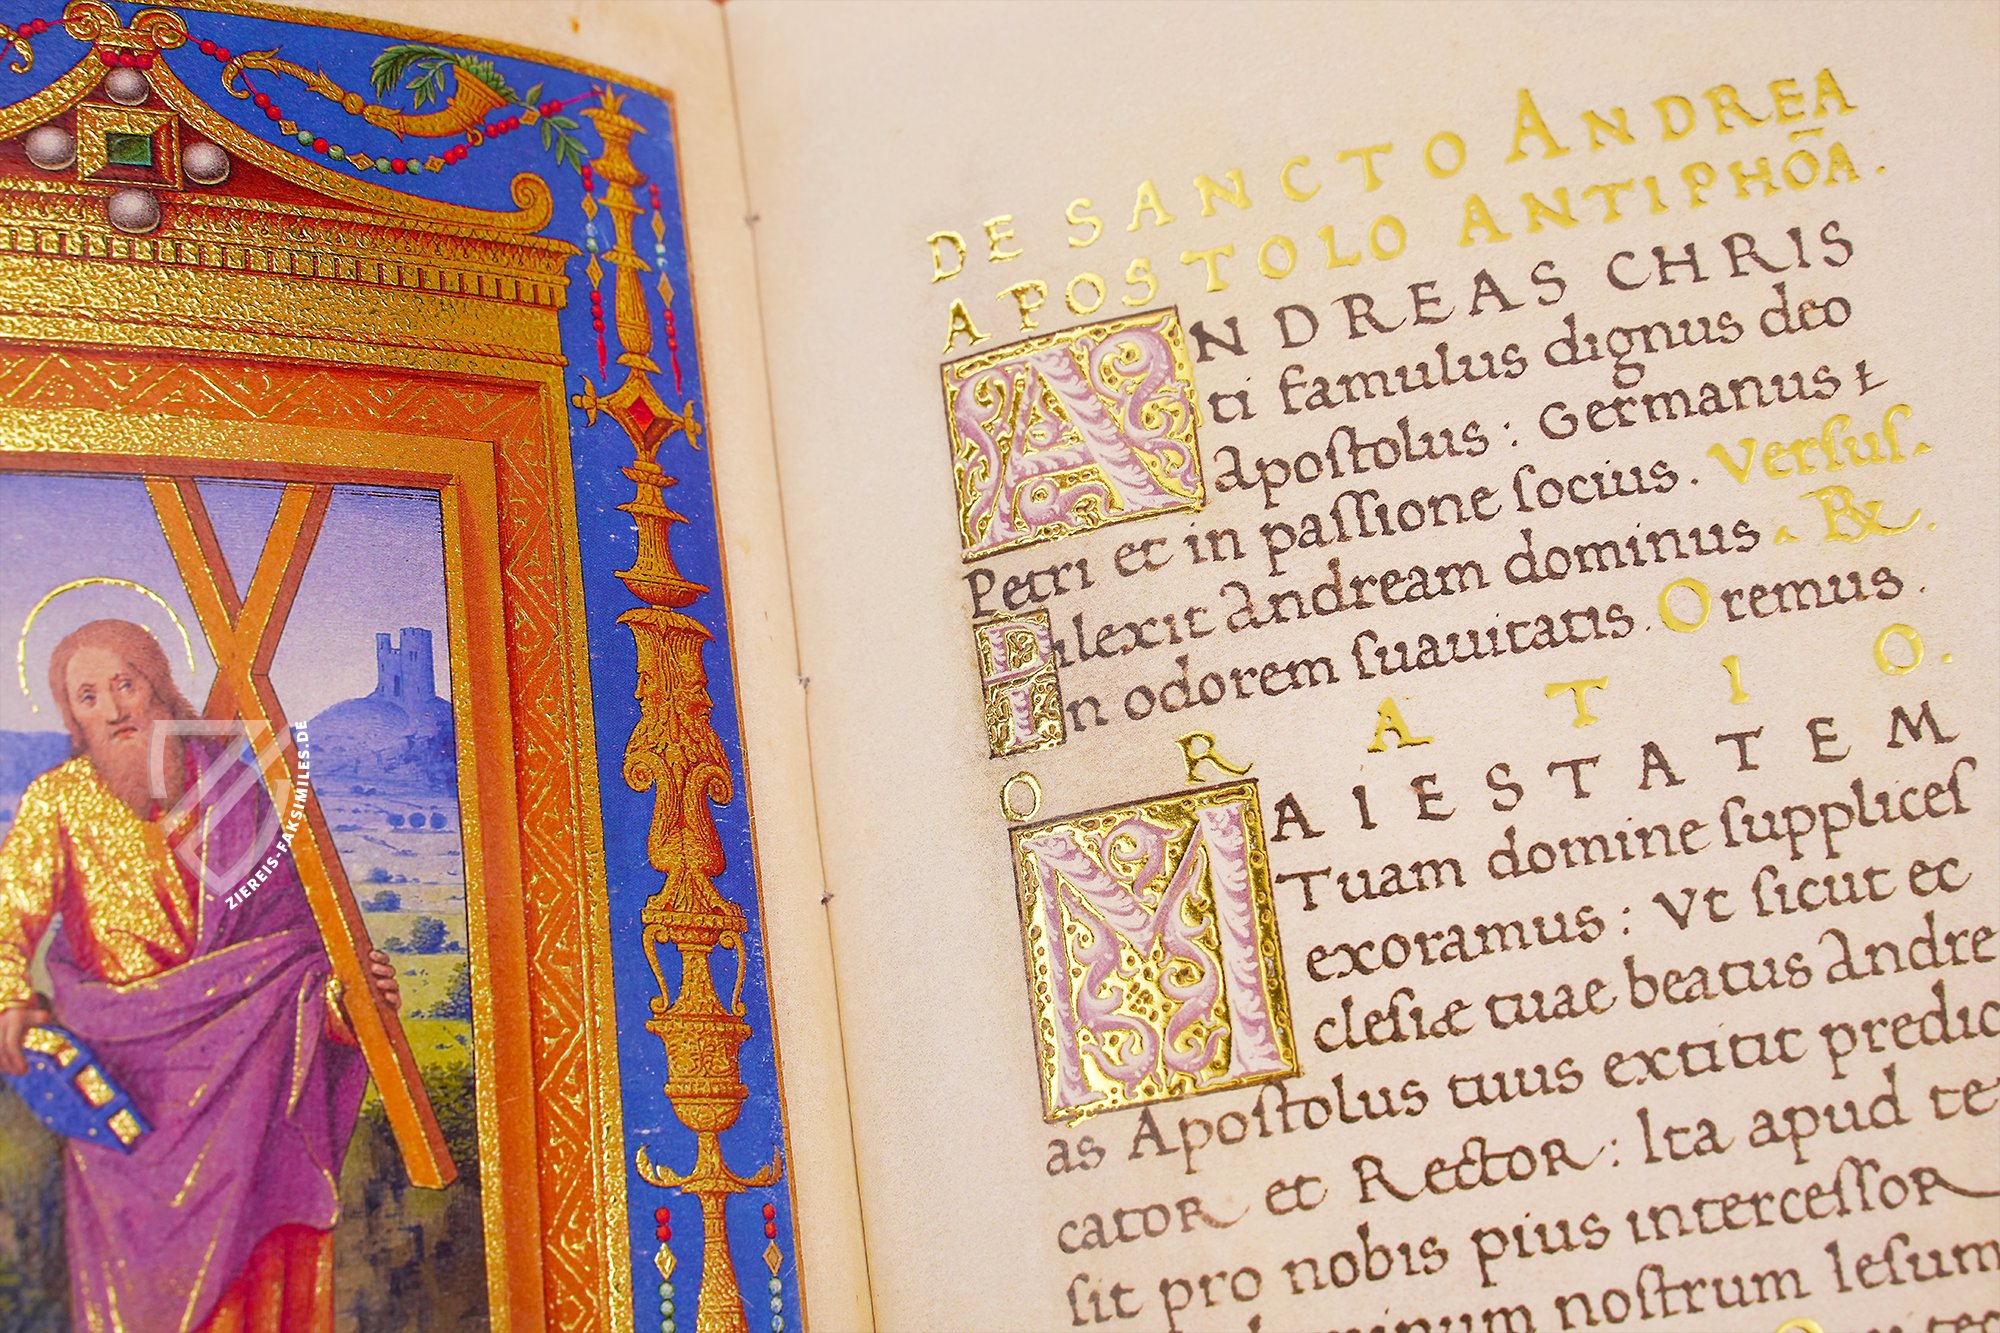 DE SANCTO ANDREA
APOSTOLO ANTIPHŌA.
ANDREAS CHRIS
ti famulus dignus deo
Apoſtolus: Germanus &
Petri et in paſſione ſocius. Verſuſ.
Dilexit Andream dominus. R&.
In odorem ſuauitatis. Oremus.
ORATIO.
MAIESTATEM
Tuam domine ſuppliceſ
exoramus: Vt ſicut ec
cleſiæ tuae beatus Andre
as Apoſtolus tuus extitit predic
cator et Rector: Ita apud te
ſit pro nobis pius interceſſor
dominum noſtrum Ieſum
ZIEREIS-FAKSIMILES.DE